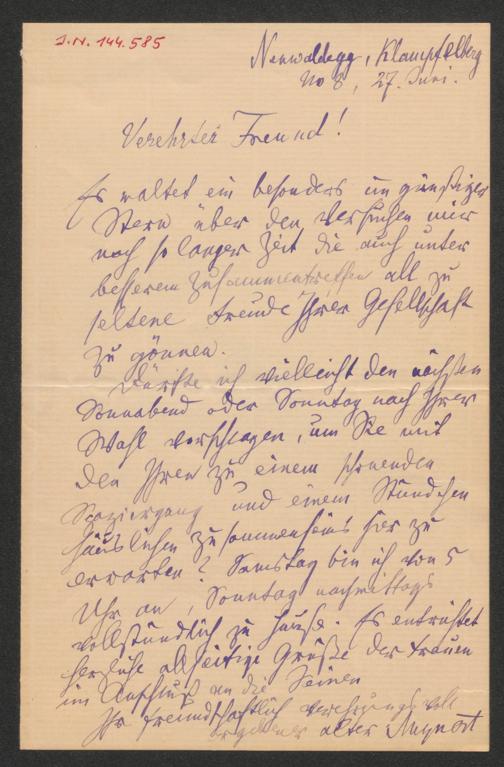 J.N. 144.585
Neuwaldegg, Klampfelberg
No 8, 27. Juni.
Verehrter Freund!
Es waltet ein besonders ungünstiger
Stern über den Versuchen mir
nach so langer Zeit die auch unter
besserem Zusammentreffen all zu
seltene Freude Ihrer Gesellschaft
zu gönnen.
Dürfte ich vielleicht den nächsten
Sonnabend oder Sonntag nach Ihrer
Wahl vorschlagen, um Sie mit
den Ihren zu einem schonenden
Spaziergang und einem Stündchen
häuslichen Zusammenseins hier zu
erwarten? Samstag bin ich von 5
Uhr an, Sonntag nachmittags
vollständlich zu Hause. Es entrichtet
herzliche allseitige Grüße der Frauen
im Anschluß an die Seinen
Ihr freundschaftlich verehrungsvoll
ergebener alter Meynert